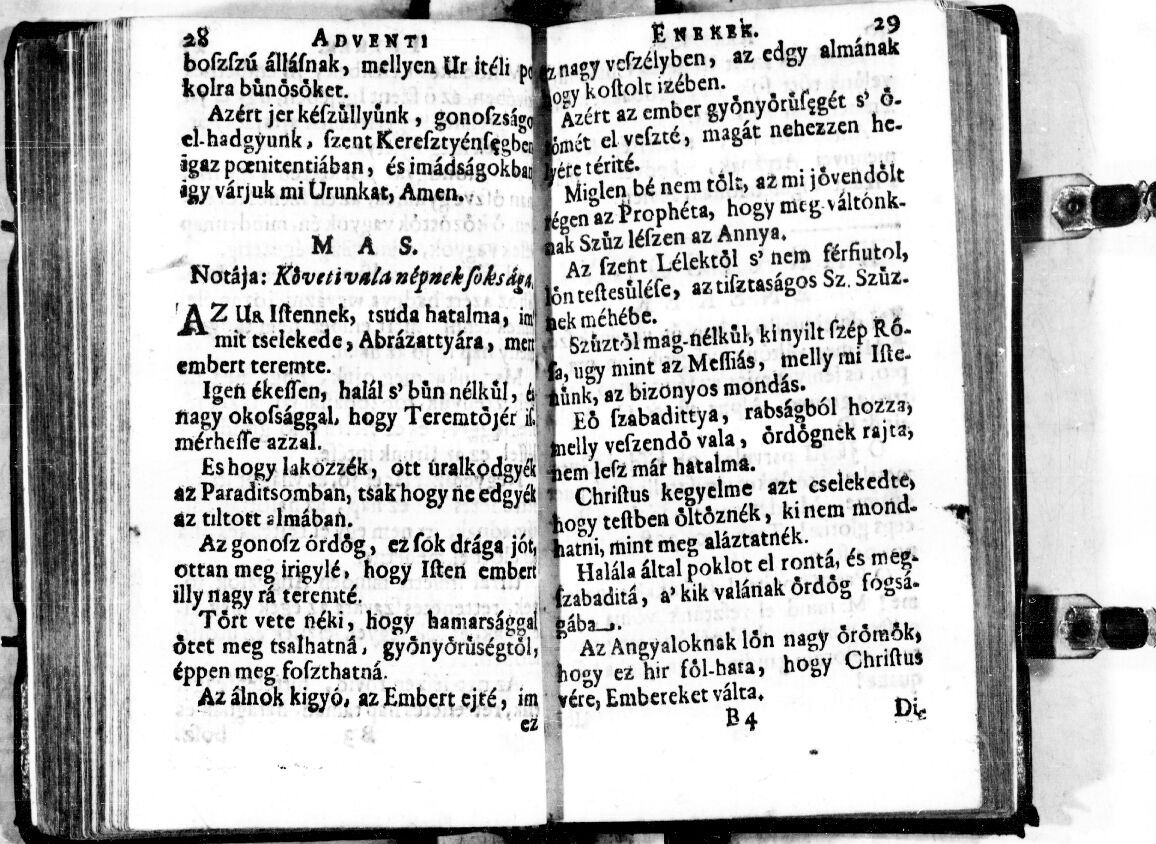 28 ADVENTI
boſzſzú álláſnak, mellyen Ur itéli po
kolra bůnősőket.
Azért jer kéſzůllyůnk, gonoſzságo
el-hadgyunk, ſzent Kereſztyénſęgben
igaz pœnitentiában, és imádságokban
ágy várjuk mi Urunkat, Amen.
M A S.
Notája: Kőveti vala népnek ſoksága,
AZ UR Iſtennek, tsuda hatalma, im
mit tselekede, Abrázattyára, mert
embert teremte.
Igen ékeſſen, halál s' bůn nélkůl, é
nagy okoſsággal, hogy Teremtőjér is
mérheſſe azzal.
Es hogy lakozzék, ott uralkodgyék
az Paraditsomban, tsak hogy ne edgyék
az tiltott almában.
Az gonoſz órdőg, ez ſok drága jót,
ottan meg irigylé, hogy Iſten embert
illy nagy rá teremté.
Tőrt vete néki, hogy hamarsággal
őtet meg tsalhatná, győnyőrůségtől,
éppen meg foſzthatná.
Az álnok kigyó, az Embert ejté, im
ez
ENEKEK. 29
z nagy veſzélyben, az edgy almának
ogy koſtolt izében.
Azért az ember győnyőrůſęgét s' ő-
őmét el veſzté, magát nehezzen he-
lyére térité.
Miglen bé nem tőlt, az mi jővendőlt
régen az Prophéta, hogy meg-váltónk-
nak Szůz léſzen az Annya.
Az ſzent Lélektől s' nem férfiutol,
lőn teſtesůléſe, az tiſztaságos Sz. Szůz-
nek méhébe.
Szůztől mag-nélkůl, ki nyilt ſzép Ró-
ſa, ugy mint az Meſſiás, melly mi Iſte-
nůnk, az bizonyos mondás.
Eő ſzabadittya, rabságból hozza,
melly veſzendő vala, őrdőgnek rajta,
nem leſz már hatalma.
Chriſtus kegyelme azt cselekedte,
hogy teſtben őltőznék, ki nem mond-
hatni, mint meg aláztatnék.
Halála által poklot el rontá, és meg-
ſzabaditá, a' kik valának őrdőg fogsá-
gába.
Az Angyaloknak lőn nagy őrőmők,
hogy ez hir fől-hata, hogy Chriſtus
vére, Embereket válta.
B 4 Di-